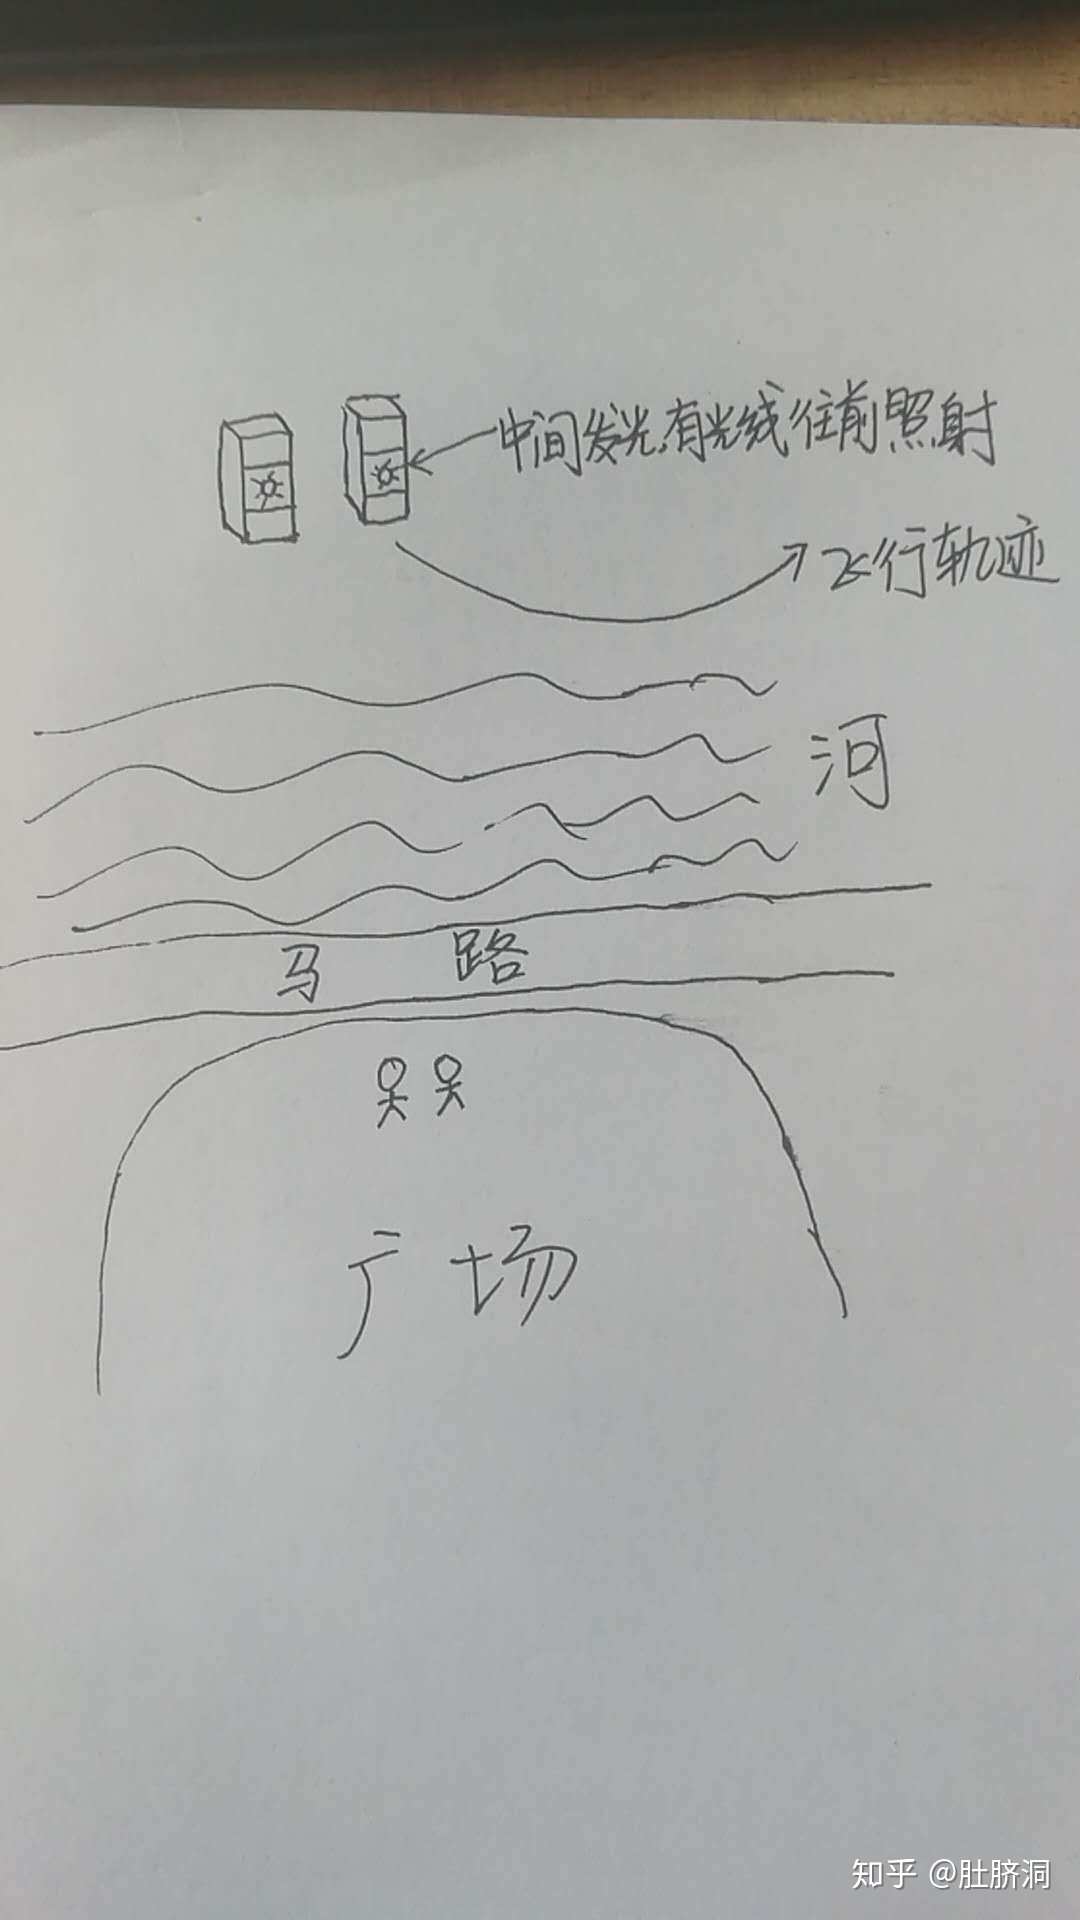 中间发光,有光线往前照射
飞行轨迹
河
马路
广场
知乎 @肚脐洞